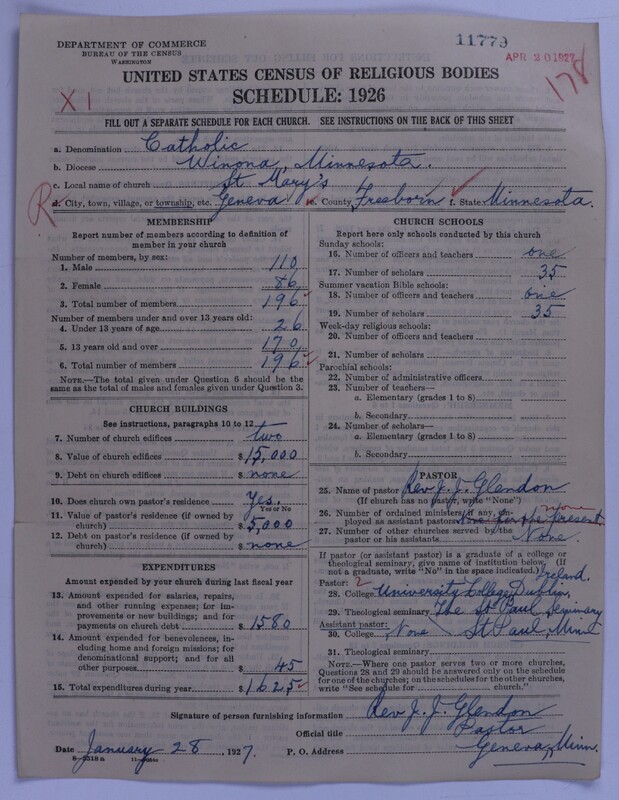 DEPARTMENT OF COMMERCE
BUREAU OF THE CENSUS
WASHINGTON
11779
APR 20 1927
178
UNITED STATES CENSUS OF RELIGIOUS BODIES
SCHEDULE: 1926
X I
FILL OUT A SEPARATE SCHEDULE FOR EACH CHURCH. SEE INSTRUCTIONS ON THE BACK OF THIS SHEET
a. Denomination Catholic
b. Diocese Winona, Minnesota.
c. Local name of church St Mary's
R
d. City, town, village, or township, etc. Geneva e. County Freeborn f. State Minnesota.
MEMBERSHIP
Report number of members according to definition of member in your church
Number of members, by sex:
1. Male 110
2. Female 86
3. Total number of members 196
Number of members under and over 13 years old:
4. Under 13 years of age 26
5. 13 years old and over 170
6. Total number of members 196
NOTE.—The total given under Question 6 should be the same as the total of males and females given under Question 3.
CHURCH BUILDINGS
See instructions, paragraphs 10 to 12
7. Number of church edifices two
8. Value of church edifices $15,000
9. Debt on church edifices $ none
10. Does church own pastor's residence Yes.
Yes or No
11. Value of pastor's residence (if owned by church) $5,000
12. Debt on pastor's residence (if owned by church) $ none
EXPENDITURES
Amount expended by your church during last fiscal year
13. Amount expended for salaries, repairs, and other running expenses; for improvements or new buildings; and for payments on church debt $1580
14. Amount expended for benevolences, including home and foreign missions; for denominational support; and for all other purposes $ 45
15. Total expenditures during year $1625
CHURCH SCHOOLS
Report here only schools conducted by this church
Sunday schools:
16. Number of officers and teachers one
17. Number of scholars 35
Summer vacation Bible schools:
18. Number of officers and teachers one
19. Number of scholars 35
Week-day religious schools:
20. Number of officers and teachers
21. Number of scholars
Parochial schools:
22. Number of administrative officers
23. Number of teachers—
a. Elementary (grades 1 to 8)
b. Secondary
24. Number of scholars—
a. Elementary (grades 1 to 8)
b. Secondary
PASTOR
25. Name of pastor Rev J. J. Glendon
(If church has no pastor, write "None")
26. Number of ordained ministers, if any, employed as assistant pastors None for the present none
27. Number of other churches served by the pastor or his assistants None.
If pastor (or assistant pastor) is a graduate of a college or theological seminary, give name of institution below. (If not a graduate, write "No" in the space indicated.)
Pastor: 2
28. College University College Dublin, Ireland.
29. Theological seminary The St Paul Seminary
Assistant pastor: St Paul, Minn
30. College None
31. Theological seminary
NOTE.—Where one pastor serves two or more churches, Questions 28 and 29 should be answered only on the schedule for one of the churches; on the schedules for the other churches, write "See schedule for church."
Signature of person furnishing information Rev J. J. Glendon
Official title Pastor
Date January 28 1927. P. O. Address Geneva, Minn.
8—5318 a